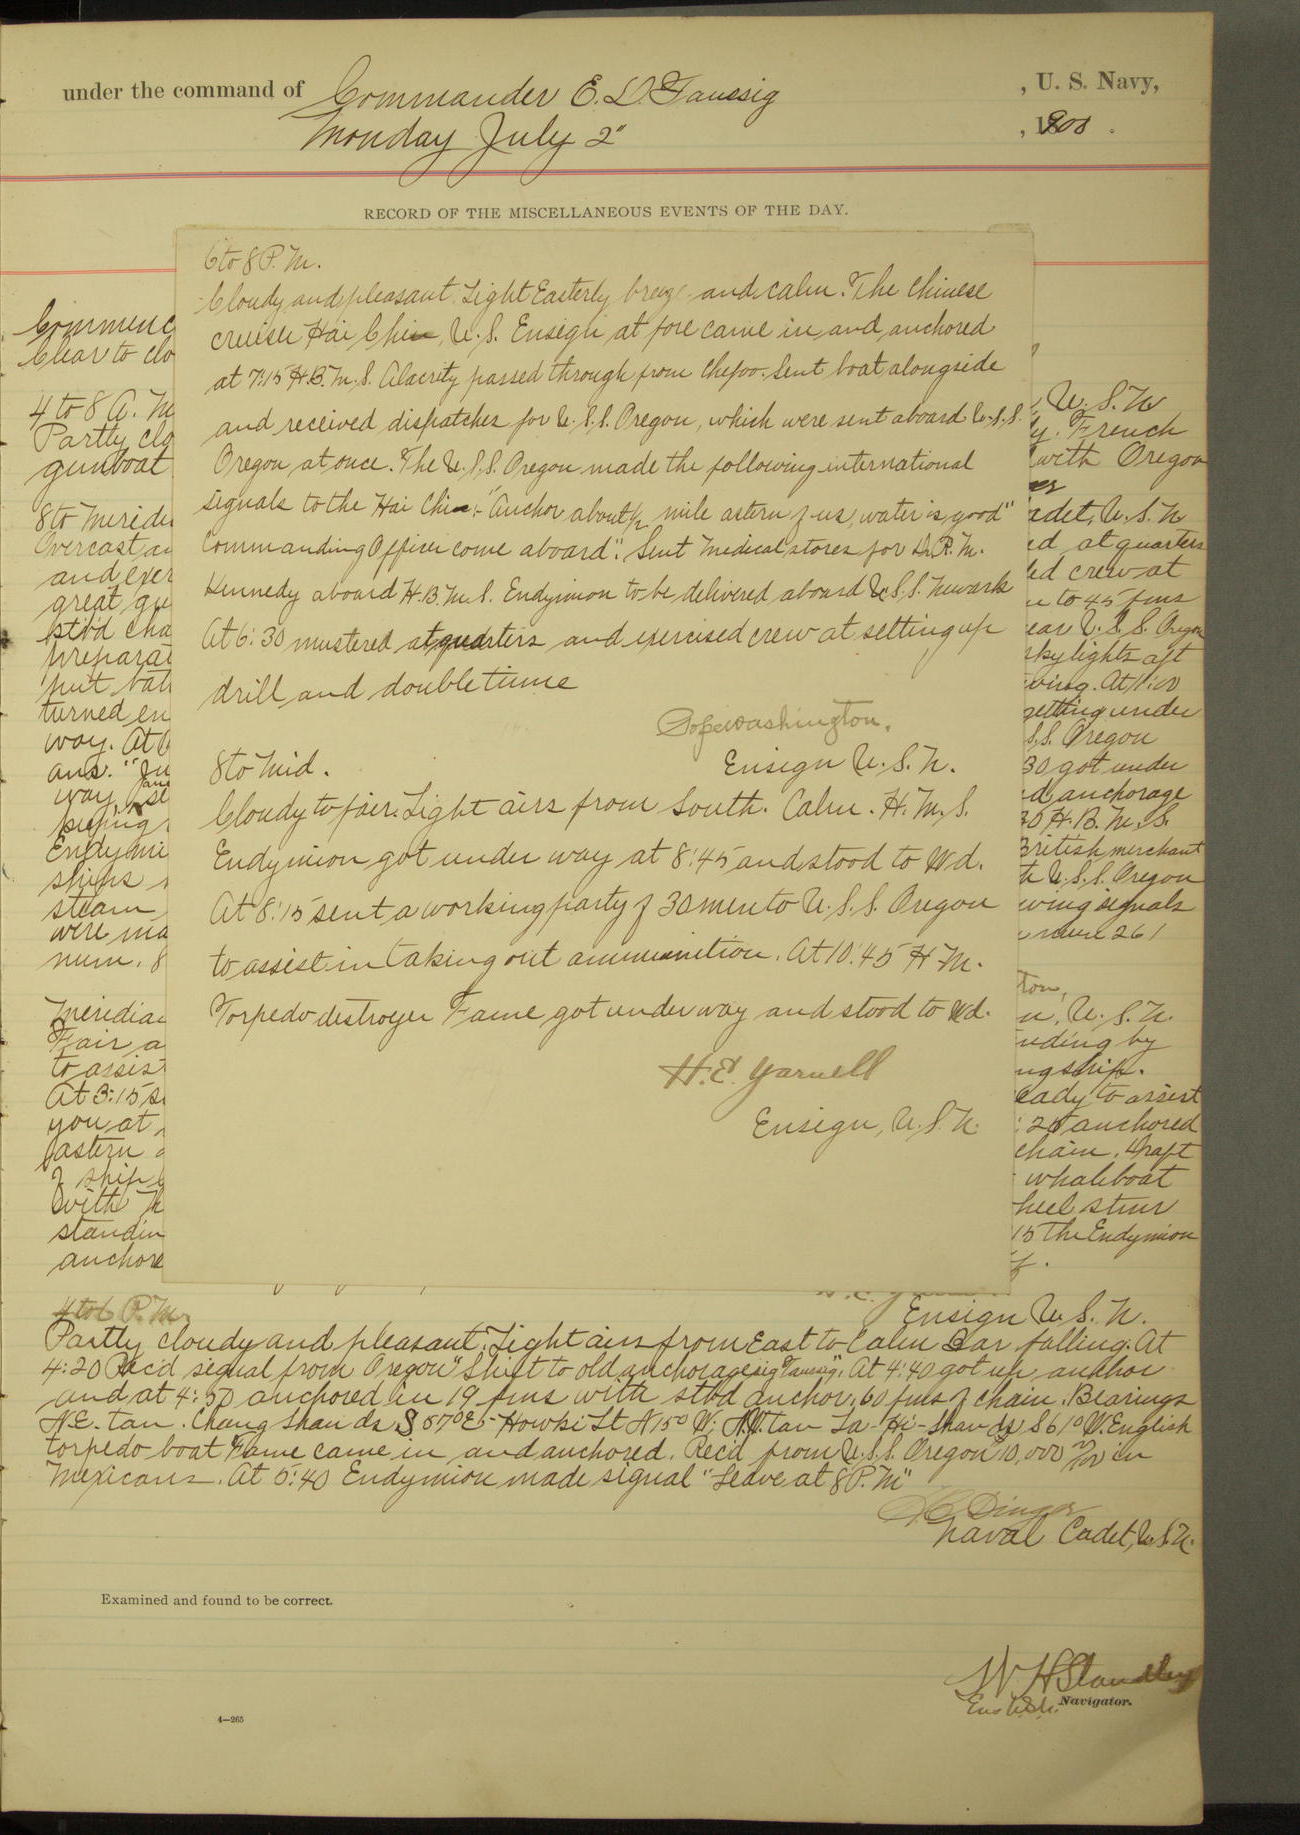 under the command of Commander E. D. Taussig , U. S. Navy,
Monday July 2" , 1900 .
RECORD OF THE MISCELLANEOUS EVENTS OF THE DAY.
6 to 8 P.M.
Cloudy and pleasant. Light Easterly breeze and calm. The Chinese
cruiser Hai Chi, U.S. Ensign at fore came in and anchored
at 7:15 H.B.M.S. Alacrity passed through from Chefoo. Sent boat alongside
and received dispatches for U.S.S. Oregon, which were sent aboard U.S.S.
Oregon at once. The U.S.S. Oregon made the following international
signals to the Hai Chi:- "Anchor about ½ mile astern of us, water is good"
Commanding Officer come aboard". Sent Medical stores for Dr. R.M.
Kennedy aboard H.B.M.S. Endymion to be delivered aboard U.S.S. Newark
At 6:30 mustered at quarters and exercised crew at setting up
drill and double time
Pope Washington.
Ensign U.S.N.
8 to Mid.
Cloudy to fair. Light airs from South. Calm. H.M.S.
Endymion got under way at 8:45 and stood to Wd.
At 8:15 sent a working party of 30 men to U.S.S. Oregon
to assist in taking out ammunition. At 10:45 H.M.
Torpedo destroyer Fame got under way and stood to Wd.
H.E. Yarnell
Ensign, U.S.N.
Commenc
Clear to clo
4 to 8 A. M
Partly clo U.S.N
gunboat French
with Oregon
8 to Merid
Overcast a adet, U.S.N
and exer ed at quarters
great gu ed crew at
stb'd cha to 45 fms
preparat ear U.S.S. Oregon
put bat skylights aft
turned en wing. At 1:00
way. At getting under
ans. "Ju S.S. Oregon
way 30 got under
anchorage
keeping 30 H.B.M.S.
Endymi British merchant
ships U.S.S. Oregon
steam wing signals
were ma num 261
num. 8
ton,
Meridian U.S.N.
Fair a nding by
to assist ngship.
At 3:15 s eady to assist
you at anchored
astern chain. Draft
of ship whaleboat
with heel struc
standin 15 The Endymion
anchore
Ensign U.S.N.
4 to 6 P.M.
Partly cloudy and pleasant. Light airs from East to Calm Bar falling. At
4:20 Rec'd signal from Oregon "Shift to old anchorage sig Taussig". At 4:40 got up anchor
and at 4:50 anchored in 19 fms with stbd anchor, 60 fms of chain. Bearings
N.E. tan. Chang Shan ds S 57° E- Howki Lt N 15° W; N.W. tan Ta-Hi-Shan ds S 61° W. English
torpedo boat Fame came in and anchored. Rec'd from U.S.S. Oregon 10,000 in
Mexicans. At 5:40 Endymion made signal "Leave at 8 P.M"
Dinger
Naval Cadet, U.S.N.
Examined and found to be correct.
W H Standley
Ens U.S.N. Navigator.
4—265